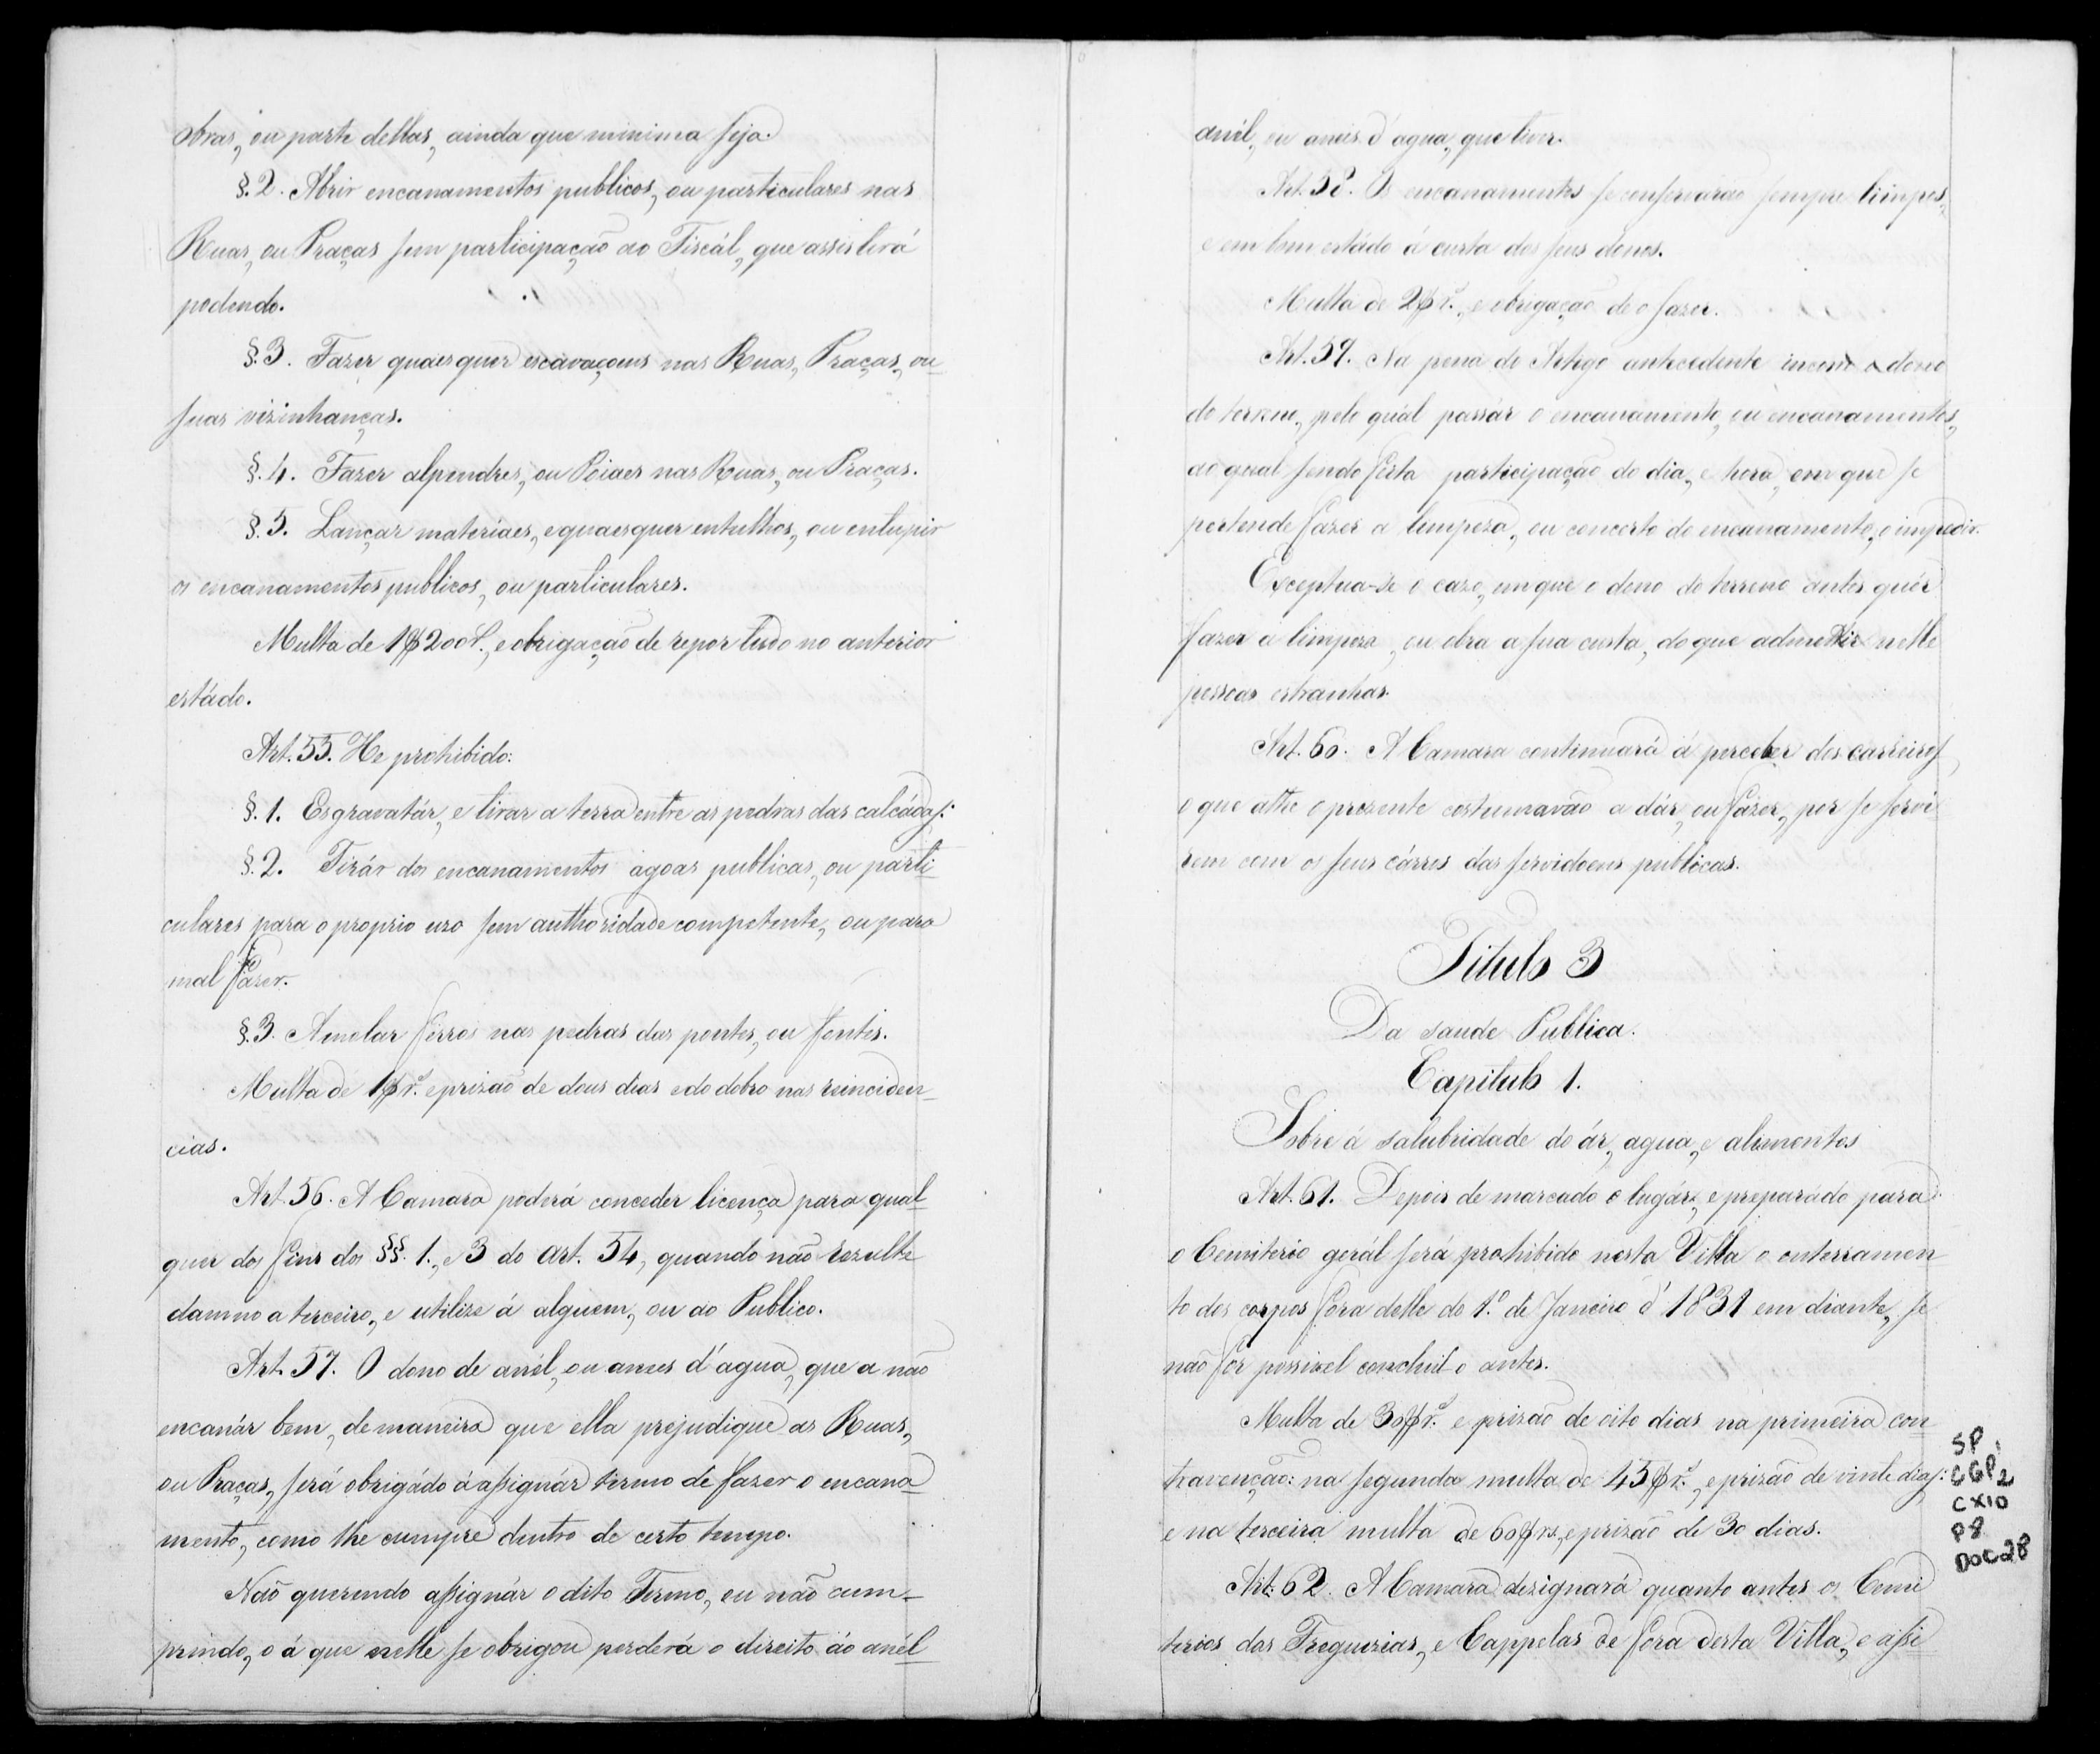 obras, ou parte dellas, ainda que minima seja.
§. 2. Abrir encanamentos publicos, ou particulares nas
Ruas, ou Praças sem participação ao Fiscál, que assistirá
podendo.
§. 3. Fazer quaesquer escavaçoens nas Ruas, Praças, ou
suas vizinhanças.
§. 4. Fazer alpendres, ou Poiaes nas Ruas, ou Praças.
§. 5. Lançar materiaes, e quaesquer entulhos, ou entupir
os encanamentos publicos, ou particulares.
Multa de 1$200 r., e obrigação de repor tudo no anterior
estádo.
Art. 55. He prohibido:
§. 1. Esgravatár, e tirar a terra entre as pedras das calçádas:
§. 2. Tirár dos encanamentos agoas publicas, ou parti-
culares para o proprio uzo sem authoridade competente, ou para
mal fazer.
§. 3. Amolar férros nas pedras das pontes, ou fontes.
Multa de 1$ r.s e prizão de dous dias e do dobro nas reinciden-
cias.
Art. 56. A Camara poderá conceder licença para qual-
quer dos fins dos §§. 1., e 3 do art. 54, quando não rezulte
damno a terceiro, e utilize á alguem, ou ao Publico.
Art. 57. O dono de anél, ou aneis d'agua, que a não
encanár bem, de maneira que ella prejudique as Ruas,
ou Praças, será obrigádo á assignár termo de fazer o encana-
mento, como lhe cumpre dentro de certo tempo.
Não querendo assignár o dito Termo, ou não cum-
prindo, o á que nelle se obrigou perderá o direito áo anél
anél, ou aneis d'agua, que tiver.
Art. 58. Os encanamentos se conservarão sempre limpos,
e em bom estádo á custa dos seus donos.
Multa de 2$ r.s, e obrigação de o fazer.
Art. 59. Na pena do Artigo antecedente incorre o dono
do terreno, pelo quál passár o encanamento, ou encanamentos,
ao qual sendo feita participação do dia, e hora, em que se
pertende fazer a limpeza, ou concerto do encanamento, o impedir.
Exceptua-se o cazo, em que o dono do terreno antes quér
fazer a limpeza, ou obra a sua custa, do que admettir nelle
pessoas estranhas.
Art. 60. A Camara continuará á perceber dos carreiros,
o que athe o prezente costumavão a dár, ou fázer, por se servi
rem com os seus cárros das servidoens publicas.
Titulo 3
Da saude Publica.
Capitulo 1.
Sobre á salubridade do ár, agua, e alimentos
Art. 61. Depois de marcado o lugár, e preparádo para
o Cemiterio gerál será prohibido nesta Villa o enterramen
to dos corpos fóra delle do 1.º de Janeiro d'1831 em diante, se
não fôr possivel concluil-o antes.
Multa de 30$ r.s e prizão de oito dias na primeira con
travenção: na segunda multa de 45$ r.s, e prizão de vinte dias:
e na terceira multa de 60$ rs, e prizão de 30 dias.
Art. 62. A Camara dezignará quanto antes os Cemi
terios das Freguezias, e Cappelas de fóra desta Villa, e assi
SP
CGP2
CX10
P8
DOC28